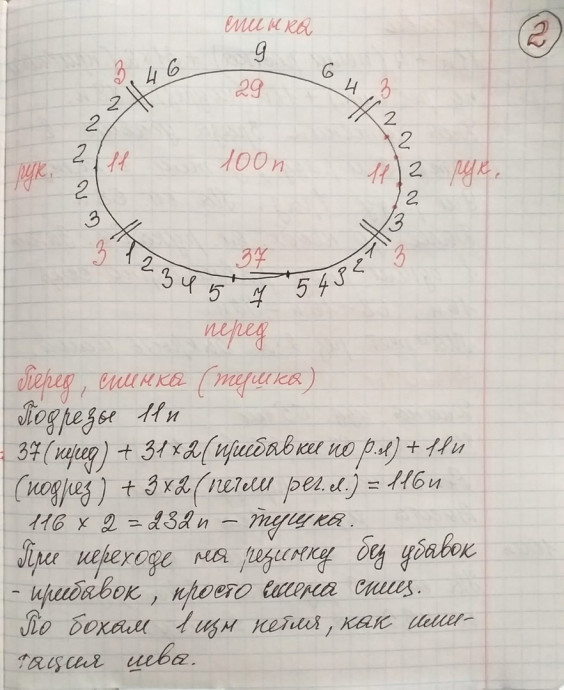 спинка
2
9
6 6
3 4 4 3
29
2 2
2 2
2 2
рук. 11 100п 11 рук.
2 2
3 3
3 1 37 1 3
2 3 4 5 7 5 4 3 2
перед
Перед, спинка (тушка)
Подрезы 11п
37 (перед) + 31 × 2 (прибавки по р.л) + 11п
(подрез) + 3×2 (петли рег.л.) = 116п
116 × 2 = 232п – тушка.
При переходе на резинку без убавок
- прибавок, просто смена спиц.
По бокам 1 изн петля, как ими-
тация шва.